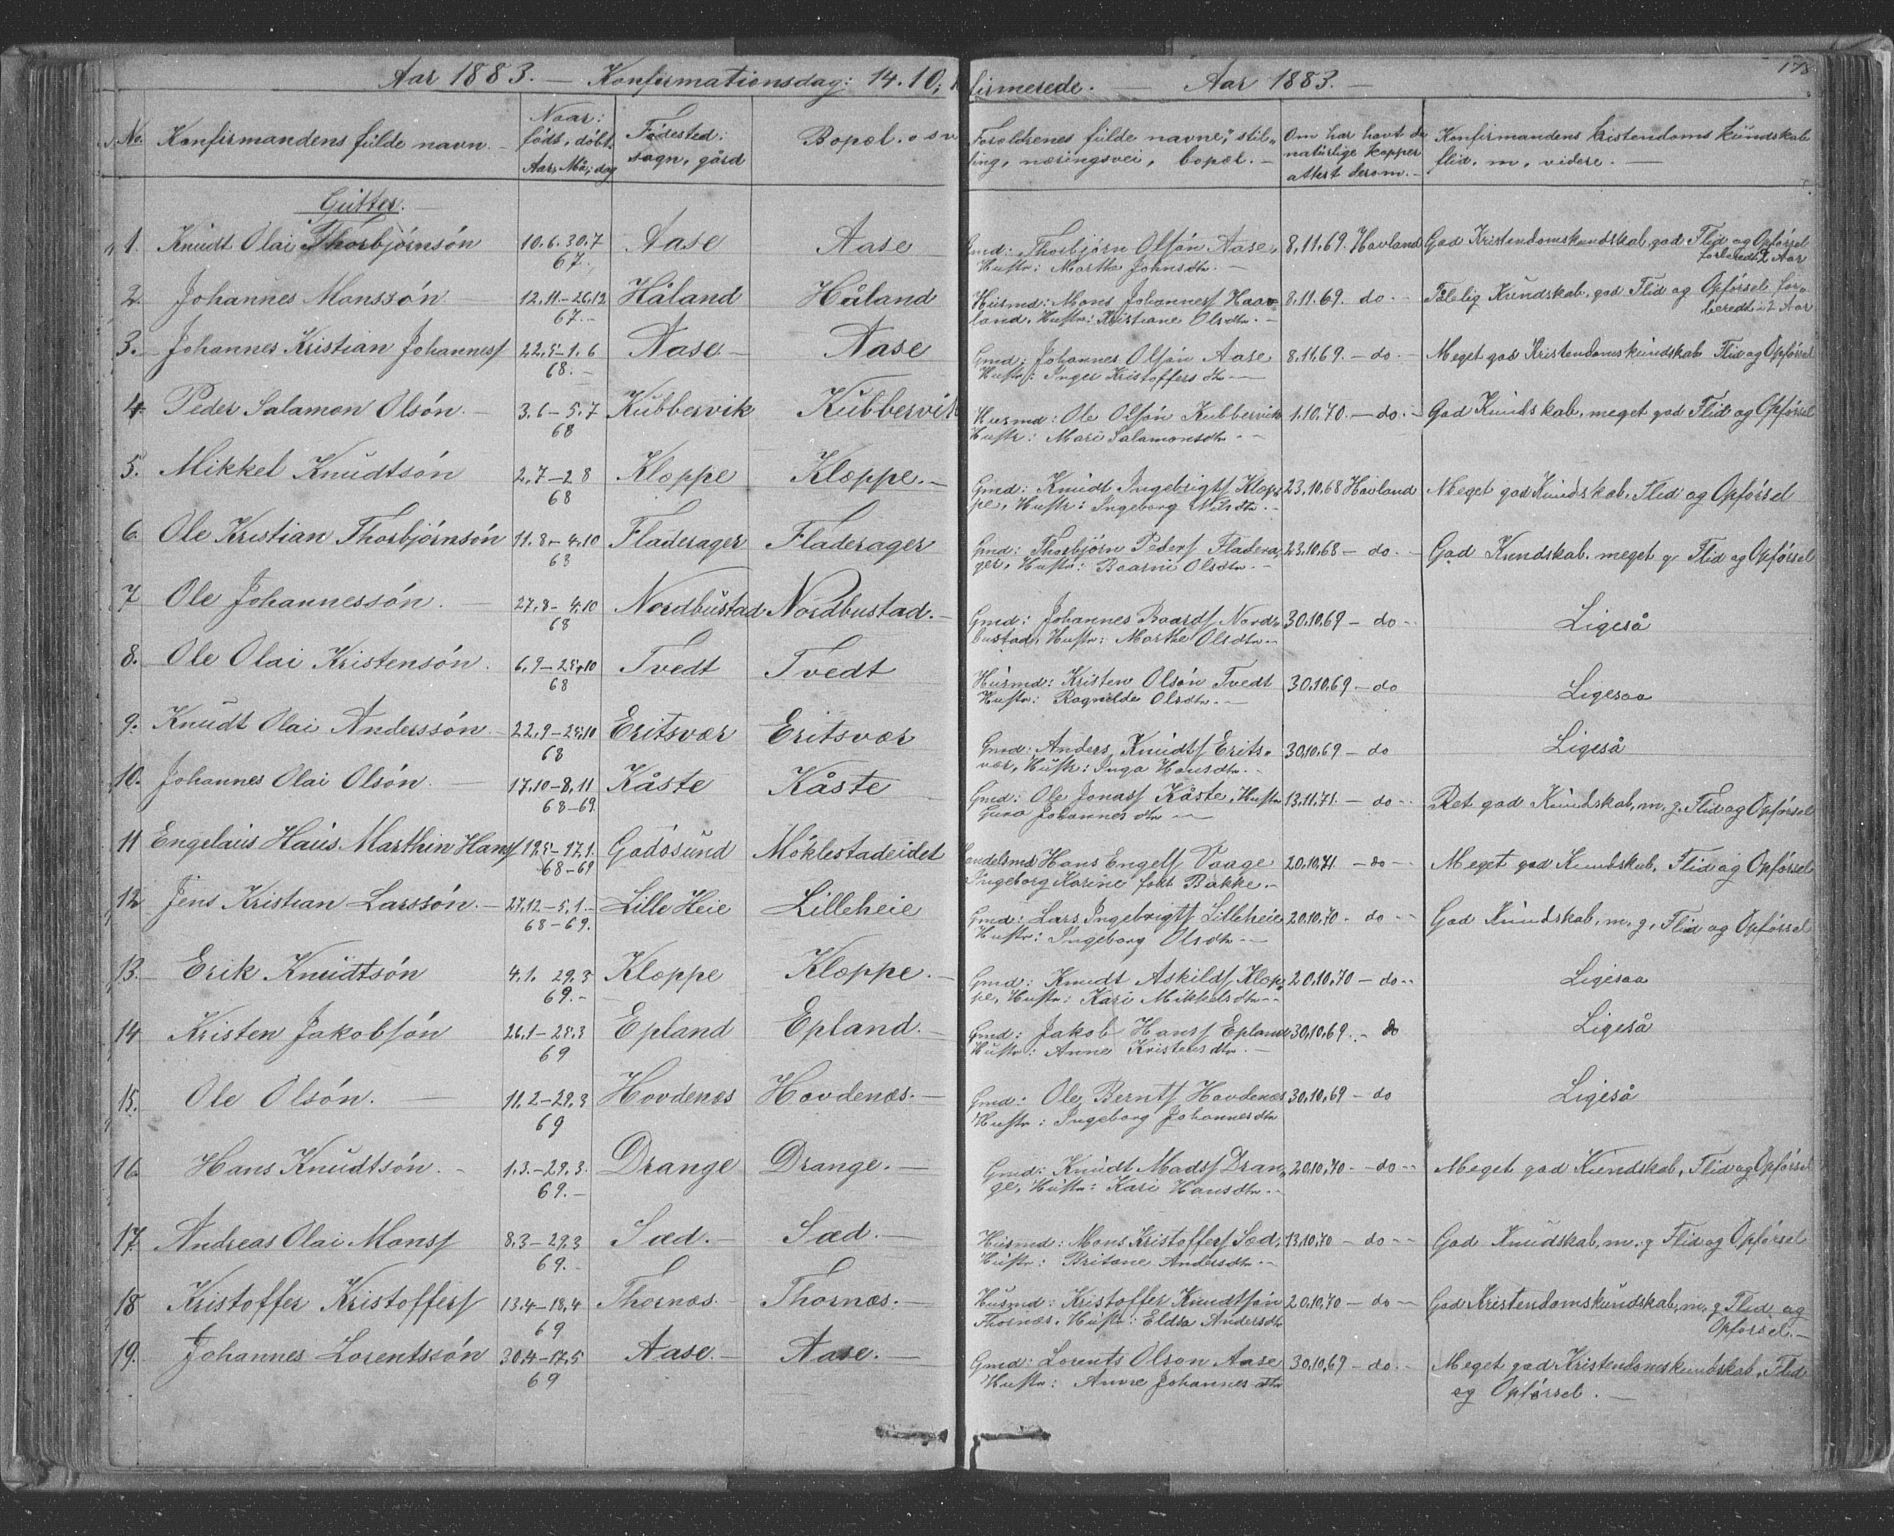 Aar 1883. — Konfirmationsdag: 14.10; firmerede. — Aar 1883. —
No. Konfirmandens fülde navn. — Naar: født, døbt. Aar, Må; dag Fødested: sogn, gård Bopæl. o s v Foreldrenes fülde navne, stilling, næringsvei, bopæl. — Om har havt de natürlige kopper attest derom. — Konfirmandens kristendoms kundskab flid. m, videre. —
Gütter. —
1. Knüdt Olai Thorbjørnsøn 10.6. 30.7 Aase Aase Gmd: Thorbjørn Olsøn Aase, 8.11.69. Havland God Kristendomskundskab, god Flid og Opførsel
67. Hustr: Marthe Johnsdtr. — forberedt i 2 Aar
2. Johannes Monssøn 12.11–26.12 Håland Håland Husmd: Mons Johannesf Haav- 8.11.69. do. Tålelig Kundskab, god Flid og Opførsel, for-
67.– land, Hustr: Kristiane Olsdtr. — beredt i 2 Aar
3. Johannes Kristian Johannesf 22.5–1.6 Aase.– Aase Gmd: Johannes Olsøn Aase 8.11.69. – do – Meget god Kristendomskundskab Flid og Opførsel
68.– Hustr: Inger Kristoffersdtr —
4. Peder Salamon Olsøn. – 3.6–5.7 Kübbervik Kübbervik Husmd: Ole Olsøn Kubbervik 1.10.70. – do. – God Kündskab, meget god Flid og Opførsel
68 Hustr: Mari Salamonsdtr – –
5. Mikkel Knüdtsøn 2.7–2 8 Kloppe Kloppe.– Gmd: Knüdt Ingebrigtf Klop- 23.10.68 Havland Meget god Kündskab, Flid og Opførsel
68 pe, Hustr: Ingeborg Nilsdtr. –
6. Ole Kristian Thorbjørnsøn 11.8–4.10 Fladerager Fladerager Gmd: Thorbjørn Pedersf Fladera- 23.10.68 – do. – God Kundskab. meget g Flid og Opførsel
68 ger, Hustr: Olsdtr. –
7. Ole Johannessøn. — 27.8–4.10 Nordbustad Nordbustad.– Gmd: Johannes Baardsf Nord- 30.10.69 – do – Ligeså
68 bustad, Hustr: Marthe Olsdtr. –
8. Ole Olai Kristensøn. 6.9–25.10 Tvedt Tvedt Husmd: Kristen Olsøn Tvedt 30.10.69 – do Ligesaa
68 Hustr: Ragnilde Olsdtr. – –
9. Knüdt Olai Anderssøn. 22.9–25.10 Eritsvær Eritsvær Gmd: Anders Knüdtsf Erits- 30.10.69 – do Ligeså
68 vær, Hustr: Inga Hansdtr. –
10. Johannes Olai Olsøn. — 17.10–8.11 Kåste Kåste Gmd: Ole Jonasf Kåste, Hustr 13.11.71. – do – Ret god Kündskab, m. g. Flid og Opførsel
68–69. Guro Johannesdtr —
11 Engelaus Haüs Marthin Hansf 19.5–17.1. Godøsund Møklestadeidet Handelsmd Hans Engelsf Vaage 20.10.71 – do – Meget god Kundskab, Flid og Opførsel
68–69 Ingeborg Karine født Bakke. –
12 Jens Kristian Larssøn. – 27.12–5.1.– Lille Heie Lilleheie Gmd: Lars Ingebrigtsf Lilleheie 20.10.70. do – God Kündskab, m. g, Flid og Opførsel
68–69. Hustr: Ingeborg Olsdtr —
13. Erik Knüdtsøn 4.1. 29.3 Kloppe Kloppe. – Gmd: Knudt Askildsf Klop- 20.10.70 – do – Ligesaa
69.– pe, Hustr: Kari Mikkelsdtr –
14. Kristen Jakobsøn 26.1–28.3 Epland Epland. – Gmd: Jakob Hansf Epland 30.10.69. – do Ligeså
69 Hustr: Anne Kristensdtr. –
15. Ole Olsøn. — 11.2–29.3 Hovdenæs Hovdenæs. – Gmd: Ole Berntsf Hovdenæs 30.10.69 – do Ligeså
69 Hustr: Ingeborg Johannesdtr
16. Hans Knüdtsøn. – 1.3.–29.3. Drange Drange. – Gmd: Knüdt Madsf Dran- 20.10.70 – do – Meget god Kundskab, Flid og Opførsel
69.– ge, Hustr: Kari Hansdtr. –
17. Andreas Olai Monsf 8.3–29.3 Sæd. – Sæd. – Husmd: Mons Kristoffersf Sæd, 13.10.70 – do – God Knudskab, m. g Flid og Opførsel
69.– Hustr: Britane Andersdtr. –
18. Kristoffer Kristoffersf 13.4–18.4 Thornæs. Thornæs. – Husmd: Kristoffer Knudtsøn 20.10.70 – do – God Kristendomskundskab, m. g Flid og
69 Thornæs, Hustr: Eldsa Andersdtr Opførsel. –
19. Johannes Lorentssøn 30.4–17.5 Aase. – Aase. – Gmd: Lorents Olson Aase 30.10.69 – do. – Meget god Kristendomskundskab, Flid
69 Hustr: Anne Johannesdtr og Opførsel. —